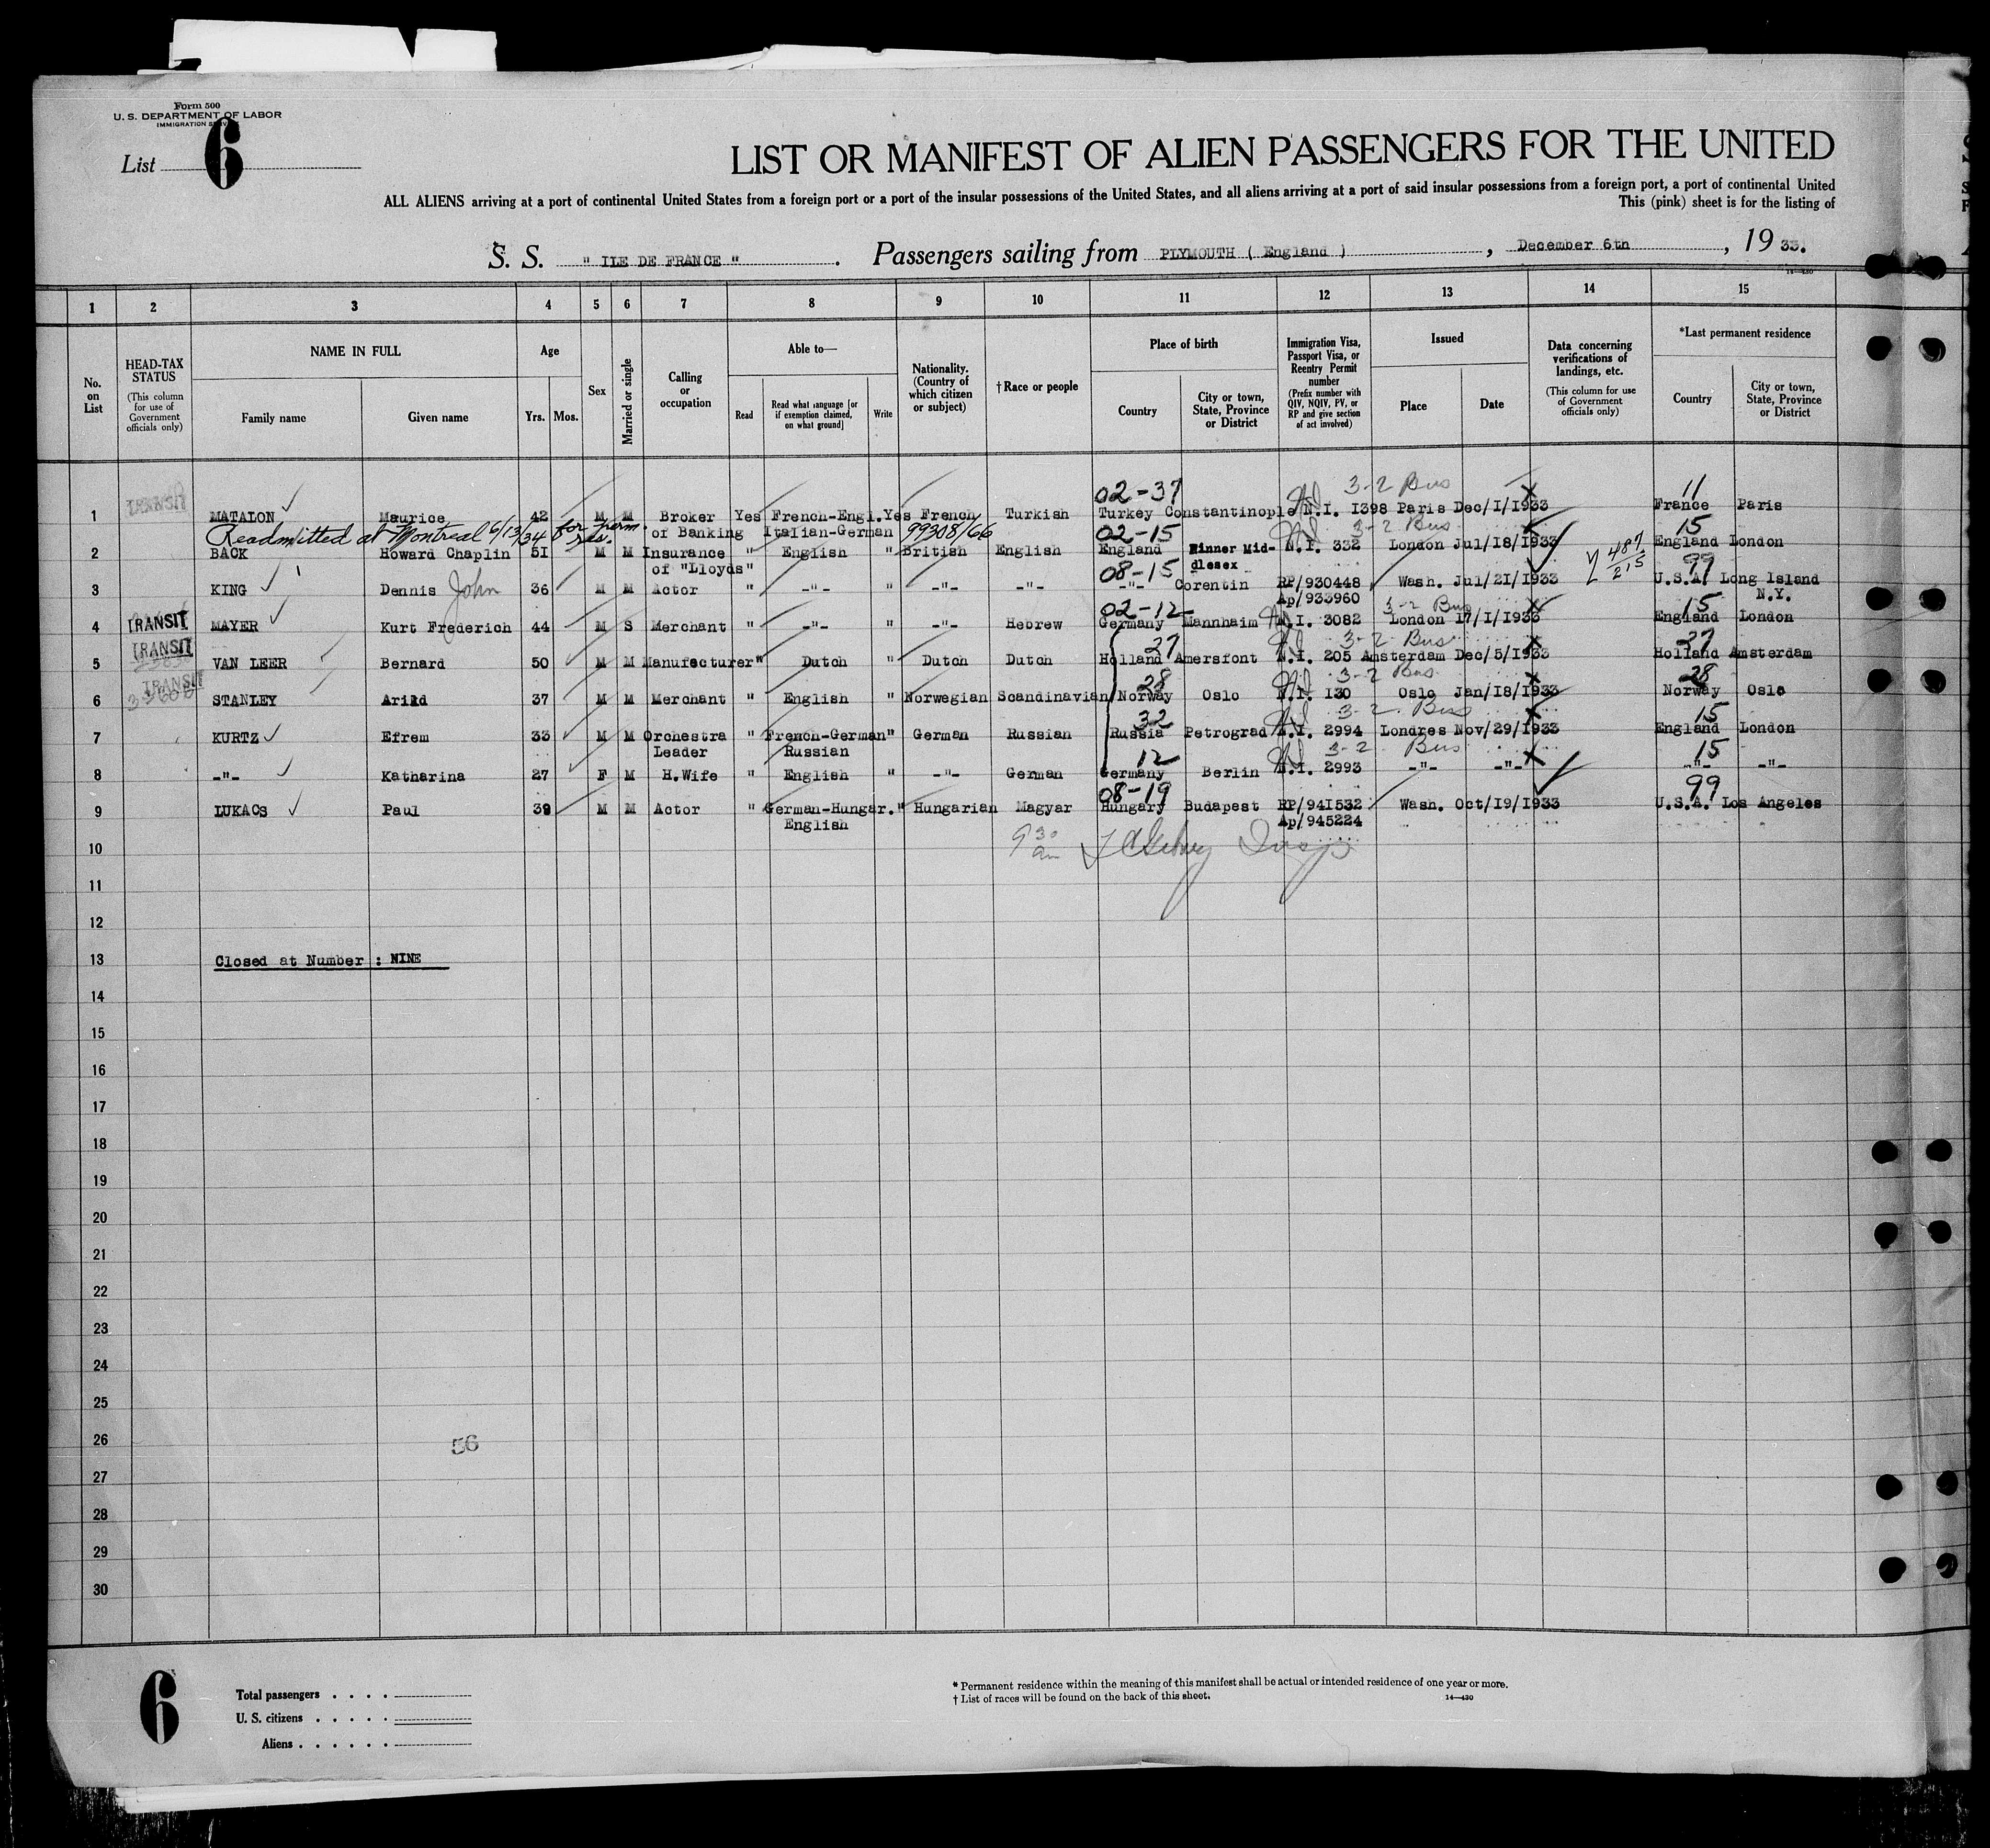 Form 500
U. S. DEPARTMENT OF LABOR
IMMIGRATION
List 6
LIST OR MANIFEST OF ALIEN PASSENGERS FOR THE UNITED
ALL ALIENS arriving at a port of continental United States from a foreign port or a port of the insular possessions of the United States, and all aliens arriving at a port of said insular possessions from a foreign port, a port of continental United
This (pink) sheet is for the listing of
S. S. " ILE DE FRANCE " . Passengers sailing from PLYMOUTH ( England ) , December 6th , 19 33.
14—430
1 2 3 4 5 6 7 8 9 10 11 12 13 14 15
No. on List
HEAD-TAX STATUS
(This column for use of Government officials only)
NAME IN FULL
Family name Given name
Age
Yrs. Mos.
Sex
Married or single
Calling or occupation
Able to—
Read
Read what language [or if exemption claimed, on what ground]
Write
Nationality. (Country of which citizen or subject)
†Race or people
Place of birth
Country
City or town, State, Province or District
Immigration Visa, Passport Visa, or Reentry Permit number
(Prefix number with QIV, NQIV, PV, or RP and give section of act involved)
Issued
Place Date
Data concerning verifications of landings, etc.
(This column for use of Government officials only)
*Last permanent residence
Country
City or town, State, Province or District
02-37 3-2 Bus 11
1 TRANSIT MATALON Maurice 42 M M Broker Yes French-Engl. Yes French Turkish Turkey Constantinople N.I. I398 Paris Dec/I/I933 France Paris
of Banking Italian-German
Readmitted at Montreal 6/13/34 for perm. res. 99308/66
02-15 3-2 Bus 15
2 BACK Howard Chaplin 5I M M Insurance " English " British English England Pinner Mid- N.I. 332 London Jul/I8/I933 England London
of "Lloyds" dlesex
08-15 487/215 99
3 KING Dennis John 36 M M Actor " -"- " -"- -"- -"- Corentin RP/930448 Wash. Jul/2I/I933 U.S.A. Long Island
Ap/933960 N.Y.
02-12 3-2 Bus 15
4 TRANSIT MAYER Kurt Frederich 44 M S Merchant " -"- " -"- Hebrew Germany Mannheim N.I. 3082 London I7/I/I933 England London
27 3-2 Bus 27
5 TRANSIT VAN LEER Bernard 50 M M Manufacturer " Dutch " Dutch Dutch Holland Amersfont N.I. 205 Amsterdam Dec/5/I933 Holland Amsterdam
28 3-2 Bus 28
6 TRANSIT STANLEY Arild 37 M M Merchant " English " Norwegian Scandinavian Norway Oslo N.I. I30 Oslo Jan/I8/I933 Norway Oslo
32 3-2 Bus 15
7 KURTZ Efrem 33 M M Orchestra " French-German " German Russian Russia Petrograd N.I. 2994 Londres Nov/29/I933 England London
Leader Russian
12 3-2 Bus 15
8 -"- Katharina 27 F M H.Wife " English " -"- German Germany Berlin N.I. 2993 -"- -"- -"- -"-
08-19 99
9 LUKACS Paul 39 M M Actor " German-Hungar. " Hungarian Magyar Hungary Budapest RP/94I532 Wash. Oct/I9/I933 U.S.A. Los Angeles
English Ap/945224
9 30 am Insp
10
11
12
13 Closed at Number : NINE
14
15
16
17
18
19
20
21
22
23
24
25
26
56
27
28
29
30
6
Total passengers
U. S. citizens
Aliens
* Permanent residence within the meaning of this manifest shall be actual or intended residence of one year or more.
† List of races will be found on the back of this sheet.
14—430